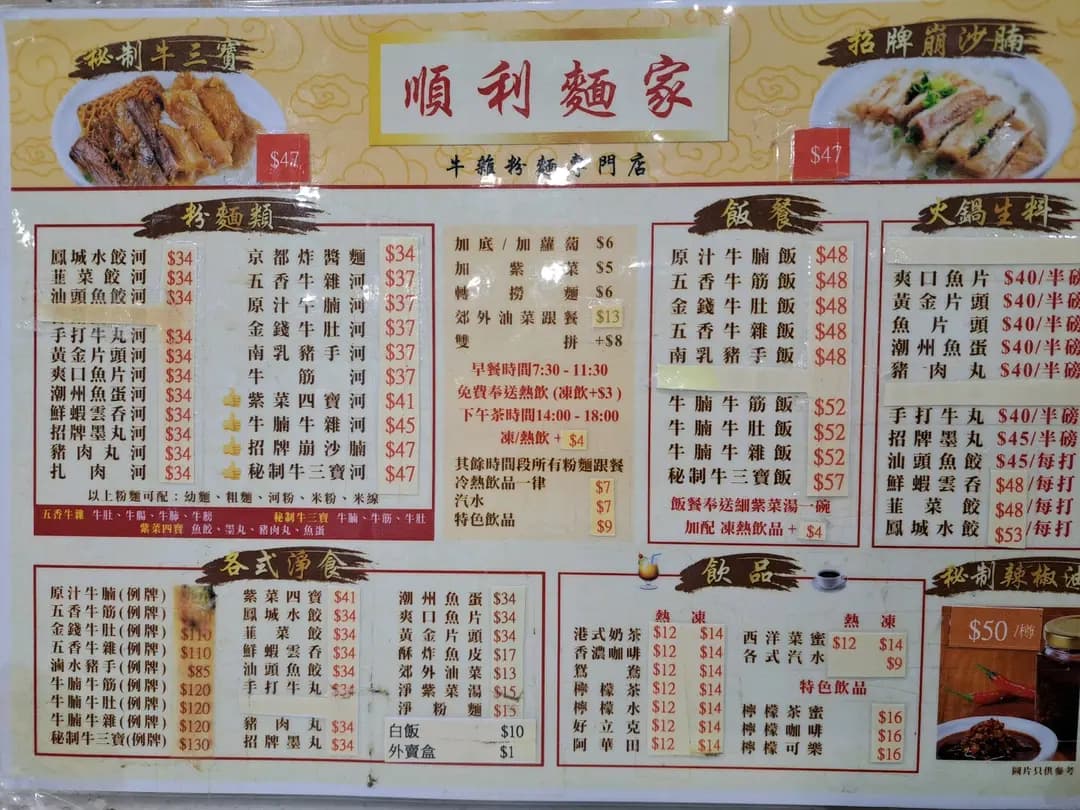 秘制牛三寶
$47
順利麵家
牛雜粉麵專門店
招牌崩沙腩
$47
粉麵類
鳳城水餃河 $34
韮菜餃河 $34
汕頭魚餃河 $34
手打牛丸河 $34
黃金片頭河 $34
爽口魚片河 $34
潮州魚蛋河 $34
鮮蝦雲吞河 $34
招牌墨丸河 $34
豬肉丸河 $34
扎肉河 $34
京都炸醬麵 $34
五香牛雜河 $37
原汁牛腩河 $37
金錢牛肚河 $37
南乳豬手河 $37
牛筋河 $37
紫菜四寶河 $41
牛腩牛雜河 $45
招牌崩沙腩 $47
秘制牛三寶河 $47
以上粉麵可配：幼麵、粗麵、河粉、米粉、米線
五香牛雜 牛肚、牛腸、牛肺、牛膀 秘制牛三寶 牛腩、牛筋、牛肚
紫菜四寶 魚餃、墨丸、豬肉丸、魚蛋
加底/加蘿蔔 $6
加紫菜 $5
轉撈麵 $6
郊外油菜跟餐 $13
雙拼 +$8
早餐時間7:30 - 11:30
免費奉送熱飲 (凍飲+$3 )
下午茶時間14:00 - 18:00
凍/熱飲 + $4
其餘時間段所有粉麵跟餐
冷熱飲品一律 $7
汽水 $7
特色飲品 $9
飯餐
原汁牛腩飯 $48
五香牛筋飯 $48
金錢牛肚飯 $48
五香牛雜飯 $48
南乳豬手飯 $48
牛腩牛筋飯 $52
牛腩牛肚飯 $52
牛腩牛雜飯 $52
秘制牛三寶飯 $57
飯餐奉送細紫菜湯一碗
加配 凍熱飲品 + $4
火鍋生料
爽口魚片 $40/半磅
黃金片頭 $40/半磅
魚片頭 $40/半磅
潮州魚蛋 $40/半磅
豬肉丸 $40/半磅
手打牛丸 $40/半磅
招牌墨丸 $45/半磅
汕頭魚餃 $45/每打
鮮蝦雲吞 $48/每打
韮菜餃 $48/每打
鳳城水餃 $53/每打
各式淨食
原汁牛腩(例牌)
五香牛筋(例牌)
金錢牛肚(例牌) $110
五香牛雜(例牌) $110
滷水豬手(例牌) $85
牛腩牛筋(例牌) $120
牛腩牛肚(例牌) $120
牛腩牛雜(例牌) $120
秘制牛三寶(例牌) $130
紫菜四寶 $41
鳳城水餃 $34
韮菜餃 $34
鮮蝦雲吞 $34
汕頭魚餃 $34
手打牛丸 $34
豬肉丸 $34
招牌墨丸 $34
潮州魚蛋 $34
爽口魚片 $34
黃金片頭 $34
酥炸魚皮 $17
郊外油菜 $13
淨紫菜湯 $15
淨粉麵 $15
白飯 $10
外賣盒 $1
飲品
熱 凍
港式奶茶 $12 $14
香濃咖啡 $12 $14
鴛鴦 $12 $14
檸檬茶 $12 $14
檸檬水 $12 $14
好立克 $12 $14
阿華田 $12 $14
熱 凍
西洋菜蜜 $12 $14
各式汽水 $9
特色飲品
檸檬茶蜜 $16
檸檬咖啡 $16
檸檬可樂 $16
秘制辣椒油
$50 /樽
圖片只供參考